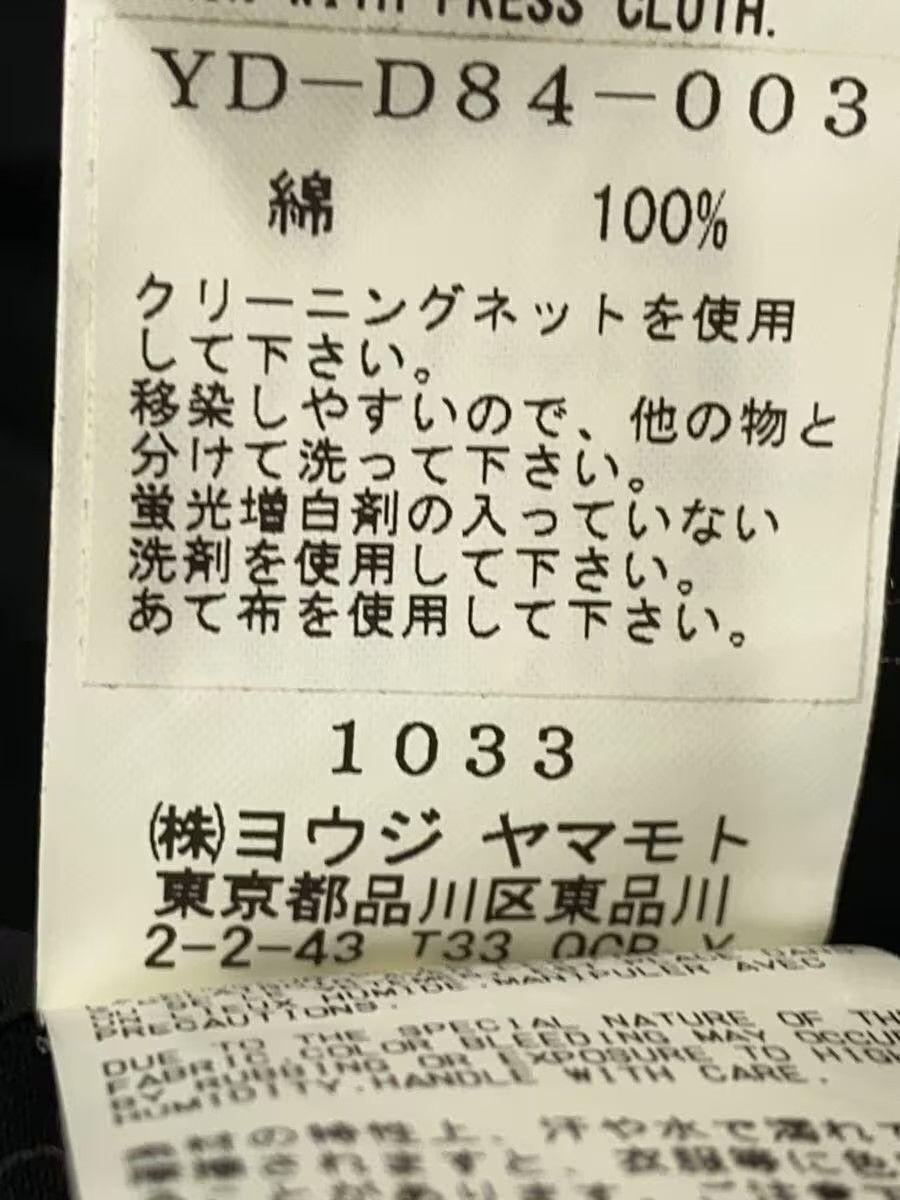 WITH PRESS CLOTH.
YD-D84-003
綿 100%
クリーニングネットを使用
して下さい。
移染しやすいので、他の物と
分けて洗って下さい。
蛍光増白剤の入っていない
洗剤を使用して下さい。
あて布を使用して下さい。
1033
㈱ヨウジ ヤマモト
東京都品川区東品川
2-2-43 T33
HUMIDE.MANIPULER AVEC
PRECAUTIONS.
DUE TO THE SPECIAL NATURE OF
FABRIC,COLOR BLEEDING MAY
BY RUBBING OR EXPOSURE TO
HUMIDITY.HANDLE WITH CARE.
の特性上、汗や水で濡れ
されますと、衣服等に色